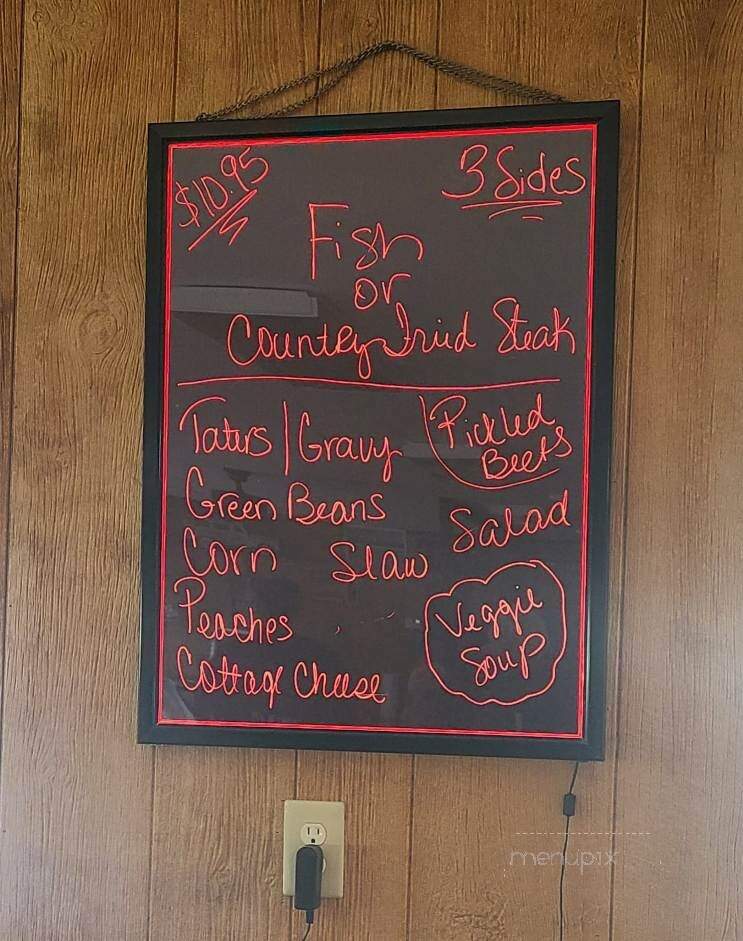 $10.95
3 Sides
Fish
or
Country Fried Steak
Taters | Gravy
Pickled
Beets
Green Beans
Salad
Corn Slaw
Peaches
Veggie
Soup
Cottage Cheese
menupix